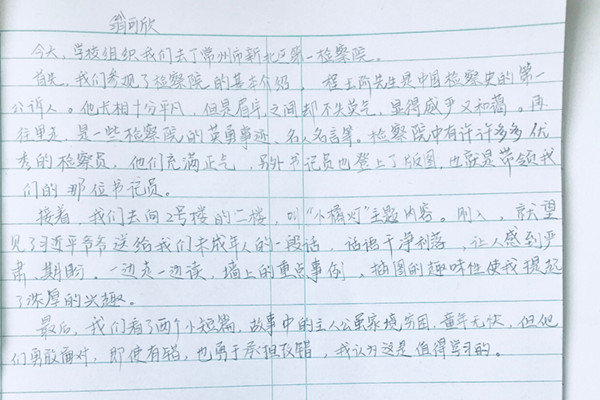 翁可欣
今天，学校组织我们去了常州市新北区第一检察院。
首先，我们参观了检察院的基本介绍，程玉阶先生是中国检察史的第一
公诉人。他长相十分平凡，但是眉宇之间却不失英气，显得威严又和蔼。再
往里走，是一些检察院的英勇事迹、名人名言等。检察院中有许许多多优
秀的检察员，他们充满正气，另外书记员也登上了版图，也就是带领我
们的那位书记员。
接着，我们去向2号楼的二楼，叫“小橘灯”主题内容。刚入，就望
见了习近平爷爷送给我们未成年人的一段话，话语干净利落，让人感到严
肃、期盼，一边走一边读，墙上的重点事例，插图的趣味性使我提起
了浓厚的兴趣。
最后，我们看了两个小短篇，故事中的主人公虽家境穷困，童年无快，但他
们勇敢面对，即使有错，也勇于承担改错，我认为这是值得学习的。